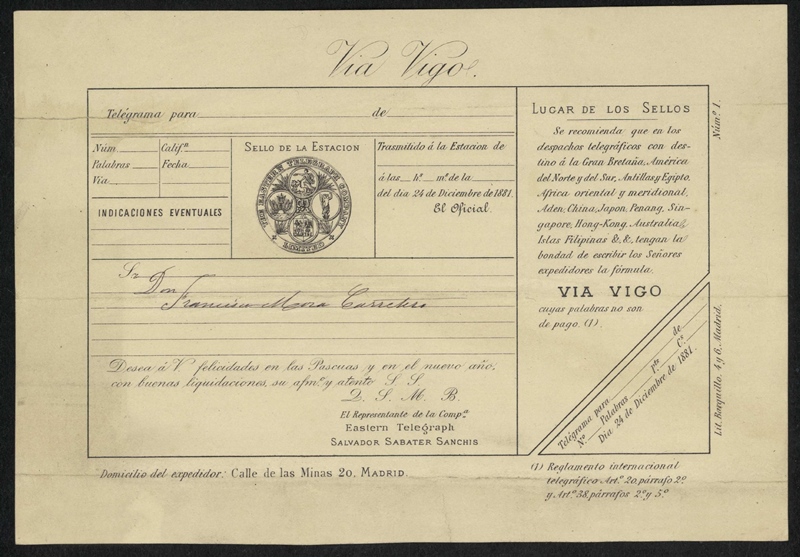 Via Vigo.
Telégrama para de
Núm Califⁿ
Palabras Fecha
Vía
INDICACIONES EVENTUALES
SELLO DE LA ESTACION
THE EASTERN TELEGRAPH COMPANY
LIMITED
Trasmitido á la Estacion de
á las hˢ mˢ de la
del dia 24 de Diciembre de 1881.
El Oficial.
Sr.
Don
Francisco Mora Carretero
Desea á V. felicidades en las Pascuas y en el nuevo año;
con buenas liquidaciones, su afmº y atento S. S.
Q. S. M. B.
El Representante de la Compª
Eastern Telegraph
SALVADOR SABATER SANCHIS
Domicilio del expedidor: Calle de las Minas 20. MADRID.
LUGAR DE LOS SELLOS
Se recomienda que en los
despachos telegráficos con des-
tino á la Gran Bretaña, América
del Norte y del Sur, Antillas y Egipto,
Africa oriental y meridional,
Aden, China, Japon, Penang, Sin-
gapore, Hong-Kong, Australia,
Islas Filipinas &, &, tengan la
bondad de escribir los Señores
expedidores la fórmula.
VIA VIGO
cuyas palabras no son
de pago. (1).
Telégrama para de
Nº Palabras Pᵗᵃˢ Cˢ
Dia 24 de Diciembre de 1881.
(1) Reglamento internacional
telegráfico Artº 20, párrafo 2º
y Artº 38, párrafos 2º y 5º
Núm.º 1.
Lit. Barquillo, 4 y 6, Madrid.